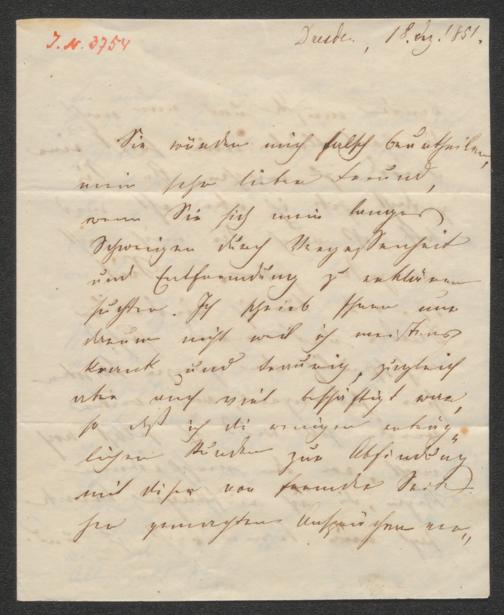 J. N. 3754
Dresden, 18. 1851.
Sie würden mich falsch beurtheilen,
mein sehr lieber Freund,
wenn Sie sich mein langes
Schweigen durch Vergessenheit
und Entfremdung zu erklären
suchten. Ich schrieb Ihnen nur
darum nicht weil ich meistens
krank und traurig, zugleich
aber auch viel beschäftigt war,
so daß ich die wenigen erträg-
lichen Stunden zur Abfindung
mit diesen von fremder Seite
her gemachten Ansprüchen ver-